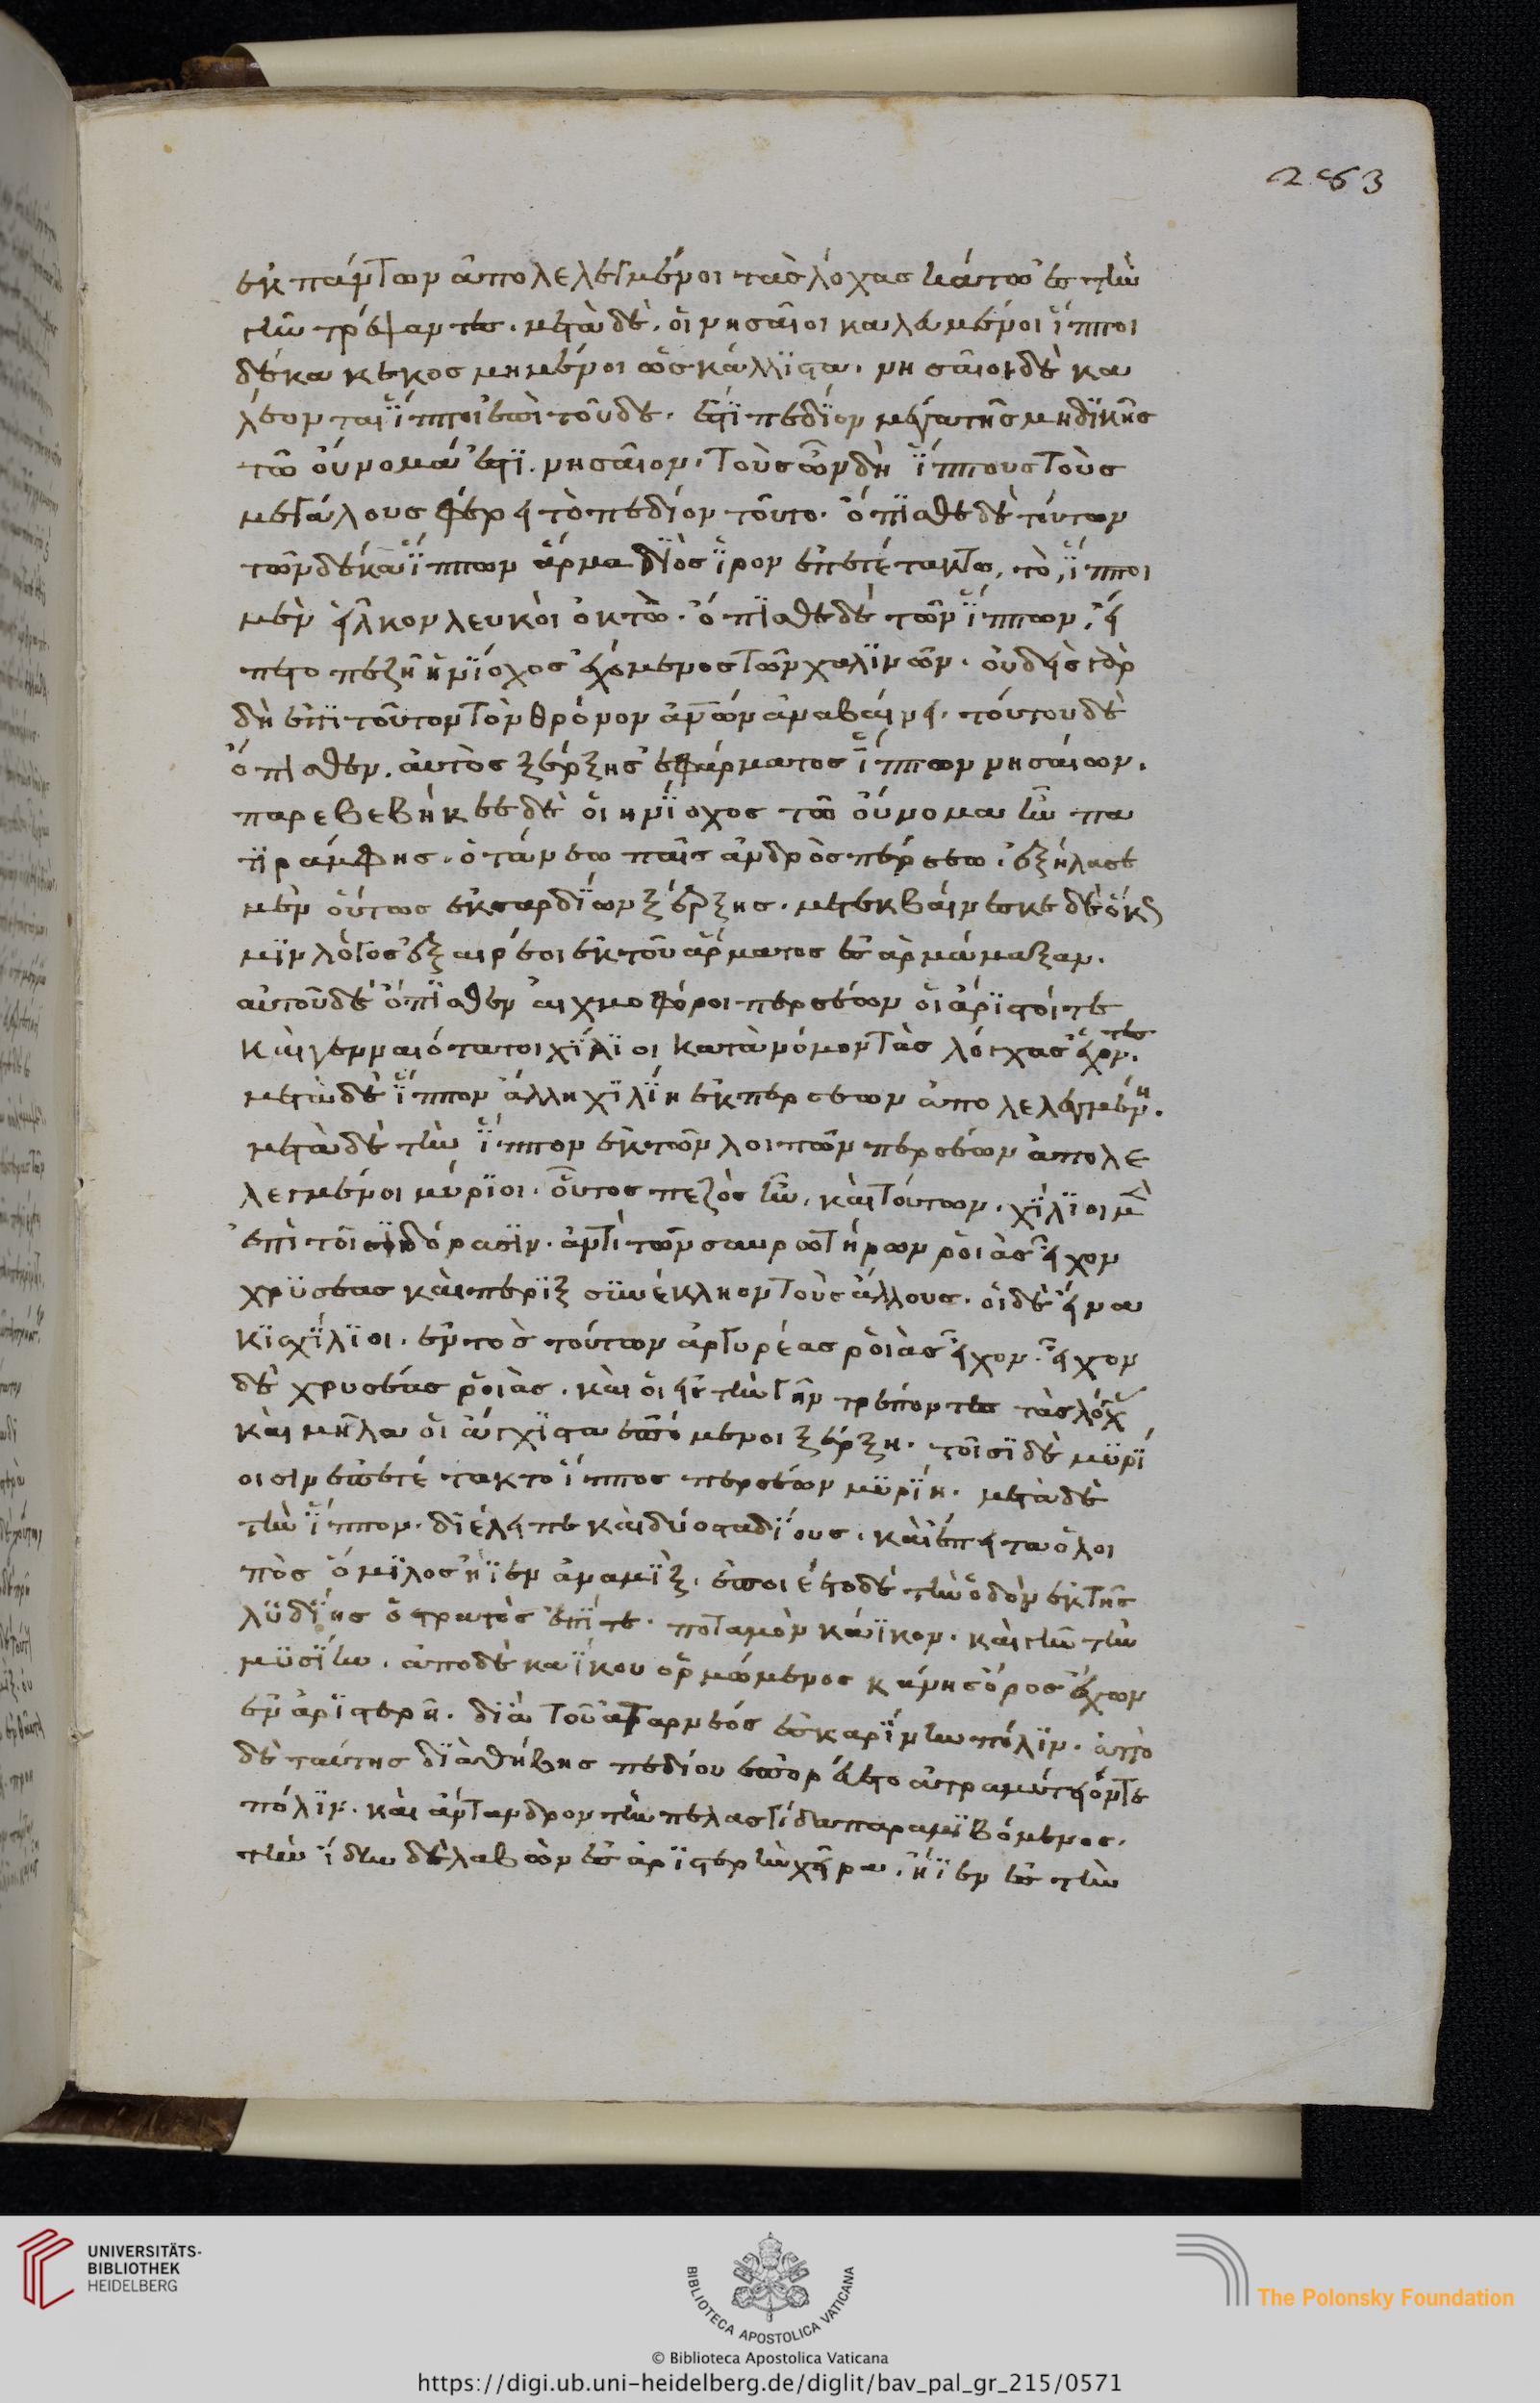 263
ἐκ πάντων ἀπολελεγμένοι τὰς λόχας κάτω ἐς τὴν
γῆν τρέψαντες. μετὰ δὲ. οἱ νησαῖοι καλεύμενοι ἵπποι
δέκα κεκοσμημένοι ὡς κάλλϊστα. νησαῖοι δὲ κα
λέονται ἵπποι ἐπὶ τοῦδε. ἔστϊ πεδΐον μέγα τῆς μηδϊκῆς
τῶ οὔνομά ἐστϊ. νησαῖον. τοὺς ὦν δὴ ἵππους τοὺς
μεγάλους φέρει τὸ πεδίον τοῦτο. ὄπϊσθε δὲ τούτων
τῶν δέκα ἵππων ἅρμα δϊὸς ϊρὸν ἐπετέτακτο, τὸ, ἵπποι
μὲν εἷλκον λευκοὶ ὀκτώ. ὄπϊσθε δὲ τῶν ἵππων, εἵ
πετο πεζῆ ἡνΐοχος ἐχόμενος τῶν χαλϊνῶν. οὐδεὶς γὰρ
δὴ ἐπὶ τοῦτον τὸν θρόνον ἀνθρώπων ἀναβαίνει. τούτου δὲ
ὄπισθεν. αὐτὸς ξέρξης ἐφ' ἅρματος ἵππων νησαίων.
παρεβεβήκεε δὲ οἱ ἡνΐοχος τῶ οὔνομα ἦν πα
τϊράμφης. ὀτάνεω παῖς ἀνδρὸς πέρσεω. ἐξήλασε
μὲν οὕτως ἐκ σαρδΐων ξέρξης. μετεκβαίνεσκε δὲ ὅκως
μϊν λόγος αἱρέοι ἐκ τοῦ ἅρματος ἐς ἁρμάμαξαν.
αὐτοῦ δὲ ὄπϊσθεν αἰχμοφόροι περσέων οἱ ἄρϊστοί τε
καὶ γενναιότατοι χΐλϊοι κατὰ νόμον τὰς λόγχας ἔχοντες.
μετὰ δὲ ἵππον ἄλλη χϊλΐη ἐκ περσέων ἀπολελεγμένη.
μετὰ δὲ τὴν ἵππον ἐκ τῶν λοιπῶν περσέων ἀπολε
λεγμένοι μύρϊοι. οὗτος πεζὸς ἦν. καὶ τούτων. χΐλϊοι μὲν
ἐπὶ τοῖσϊ δόρασϊν. ἀντὶ τῶν σαυρωτήρων ῥοιὰς εἶχον
χρϋσέας καὶ πέρϊξ συνέκληον τοὺς ἄλλους. οἱ δὲ εἰνα
κϊσχΐλϊοι. ἐντὸς τούτων ἀργυρέας ῥοιὰς εἶχον. εἶχον
δὲ χρυσέας ῥοιὰς. καὶ οἱ ἐς τὴν γῆν τρέποντες τὰς λόγχας
καὶ μῆλα οἱ ἄγχϊστα ἑπόμενοι ξέρξη. τοῖσϊ δὲ μϋρΐ
οισιν ἐπετέτακτο ἵππος περσέων μϋρΐη. μετὰ δὲ
τὴν ἵππον. δϊέλειπε καὶ δύο σταδΐους. καὶ ἔπειτα ὁ λοι
πὸς ὅμϊλος ἤϊεν ἀναμϊξ. ἐποιέετο δὲ τὴν ὁδὸν ἐκ τῆς
λϋδΐης ὁ στρατὸς ἐπΐ τε. ποταμὸν κάϊκον. καὶ γῆν τὴν
μϋσΐην. ἀπὸ δὲ καΐκου ὁρμώμενος κάνης ὄρος ἔχων
ἐν ἀρϊστερῆ. δϊὰ τοῦ ἀταρνέος ἐς καρΐνην πόλϊν. ἀπὸ
δὲ ταύτης δϊὰ θήβης πεδίου ἐπορεύετο ἀτραμύτειόν τε
πόλϊν. καὶ ἄντανδρον τὴν πελασγίδα παραμϊβόμενος.
τὴν ἴδην δὲ λαβὼν ἐς ἀρϊστερὴν χεῖρα. ἤϊεν ἐς τὴν
UNIVERSITÄTS-
BIBLIOTHEK
HEIDELBERG
BIBLIOTECA APOSTOLICA VATICANA
The Polonsky Foundation
© Biblioteca Apostolica Vaticana
https://digi.ub.uni-heidelberg.de/diglit/bav_pal_gr_215/0571